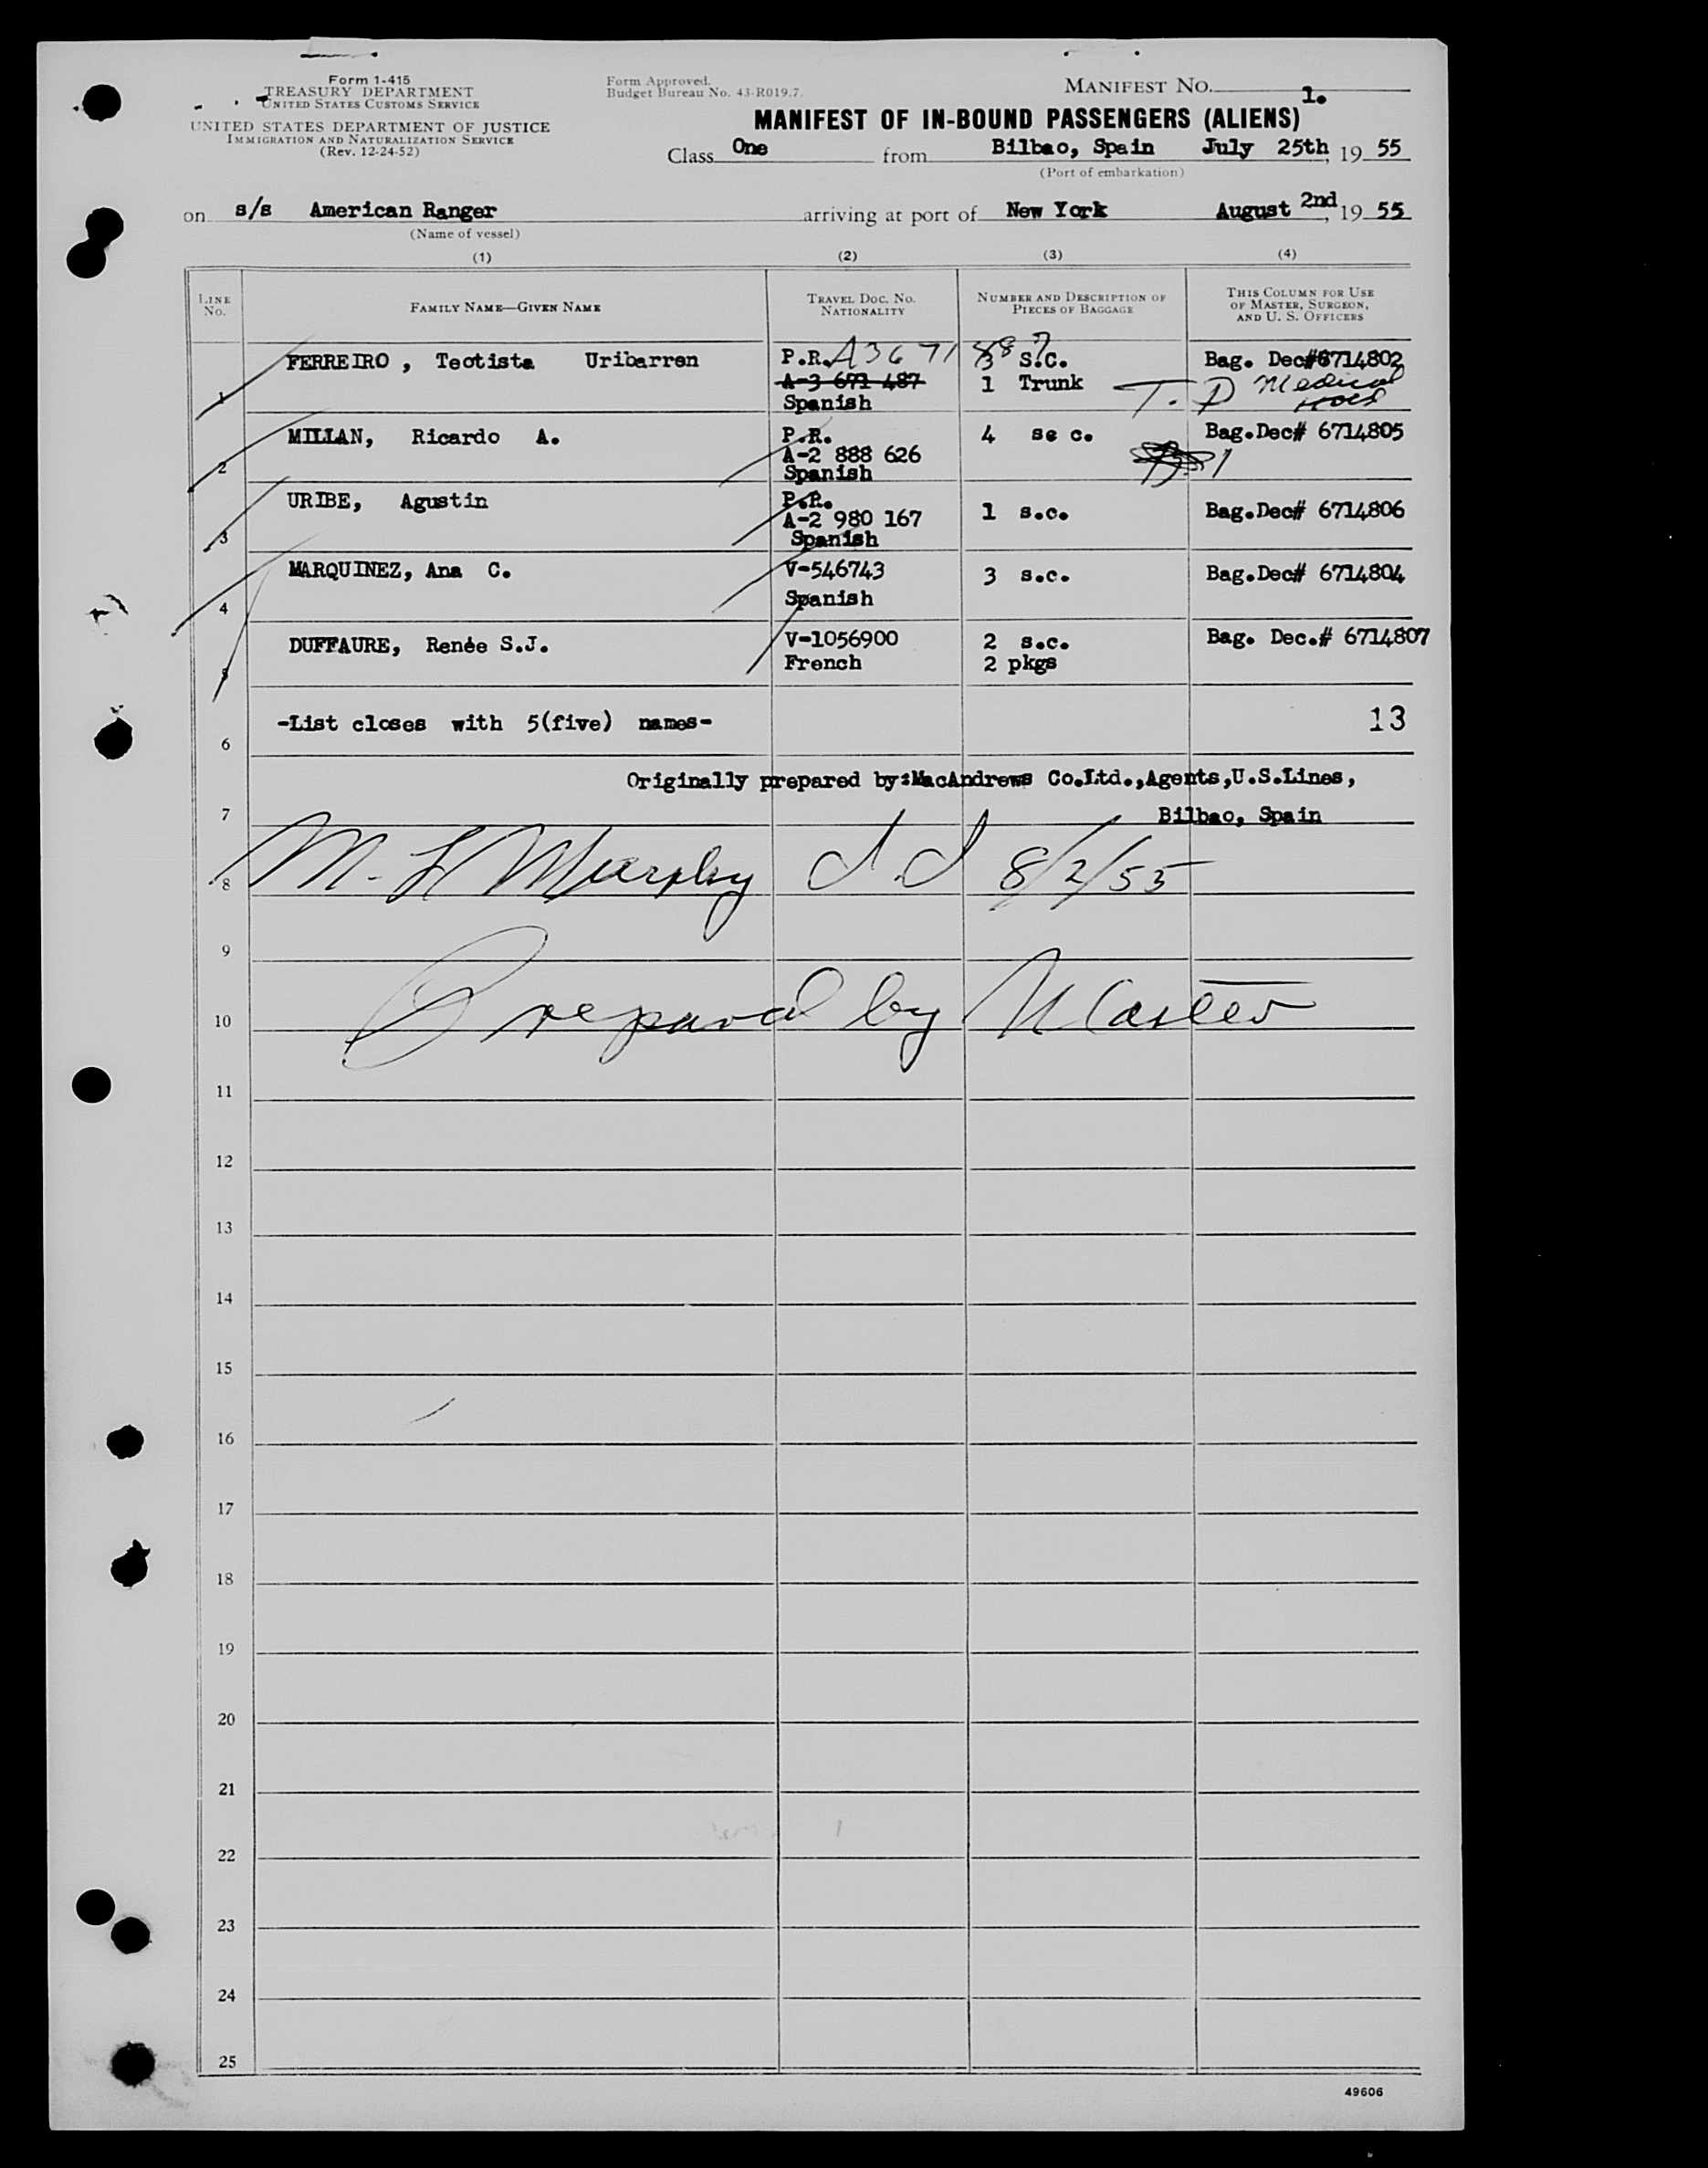 Form 1-415
TREASURY DEPARTMENT
UNITED STATES CUSTOMS SERVICE
UNITED STATES DEPARTMENT OF JUSTICE
IMMIGRATION AND NATURALIZATION SERVICE
(Rev. 12-24-52)
Form Approved.
Budget Bureau No. 43-R019.7.
MANIFEST NO. 1.
MANIFEST OF IN-BOUND PASSENGERS (ALIENS)
Class One from Bilbao, Spain July 25th, 19 55
(Port of embarkation)
on s/s American Ranger arriving at port of New York August 2nd, 19 55
(Name of vessel)
(1) (2) (3) (4)
LINE No. FAMILY NAME—GIVEN NAME TRAVEL DOC. NO. NATIONALITY NUMBER AND DESCRIPTION OF PIECES OF BAGGAGE THIS COLUMN FOR USE OF MASTER, SURGEON, AND U. S. OFFICERS
1 FERREIRO , Teotista Uribarren P.R. A3671887 3 S.C. Bag. Dec#6714802
A-3 671 487 1 Trunk T. D Medical
Spanish
2 MILLAN, Ricardo A. P.R. 4 se c. Bag.Dec# 6714805
A-2 888 626
Spanish
3 URIBE, Agustin P.R. 1 s.c. Bag.Dec# 6714806
A-2 980 167
Spanish
4 MARQUINEZ, Ana C. V-546743 3 s.c. Bag.Dec# 6714804
Spanish
5 DUFFAURE, Renée S.J. V-1056900 2 s.c. Bag. Dec.# 6714807
French 2 pkgs
6 -List closes with 5(five) names- 13
Originally prepared by:MacAndrews Co.Ltd.,Agents,U.S.Lines,
7 Bilbao, Spain
8 M. L Murphy 8/2/55
9
10 Prepared by Master
11
12
13
14
15
16
17
18
19
20
21
22
23
24
25
49606